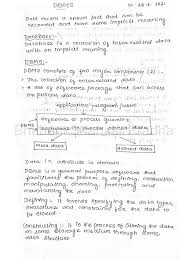 DBMS
Data means a known fact that can be
recorded and have some implicit meaning.
Database:-
Database is a collection of inter-related data
with an implicit meaning.
DBMS:-
DBMS consists of two major components (2) :-
• The collection of inter-related data
• A set of software package that can access
or process data.
application program/user
DBMS
software to process queries
software to process stored data
meta data
stored data
Data in attribute is domain
DBMS is a general purpose software that
facilitates the process of defining, construction,
manipulating, sharing, protecting and
maintaining the data.
Defining :- It involves specifying the data types,
structures and constraints for the data to
be stored
Constructing :- It is the process of storing the data
in some storage medium through some
data structure.